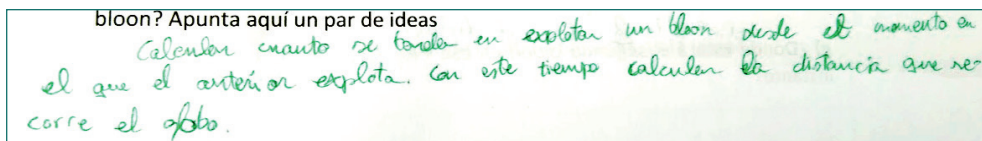 bloon? Apunta aquí un par de ideas
Calculan cuanto se tarda en explotar un bloon desde el momento en
el que el anterior explota. Con este tiempo calculan la distancia que re-
corre el globo.